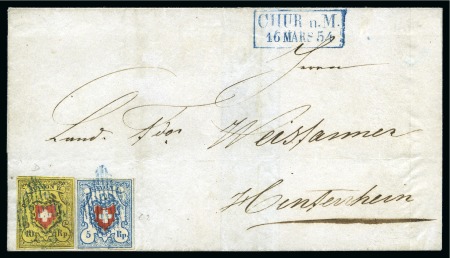 CHUR n.M.
16 MARS 54
Herrn
Land. Fdor Weisstanner
Hinterrhein
10 Rp.
5 Rp.